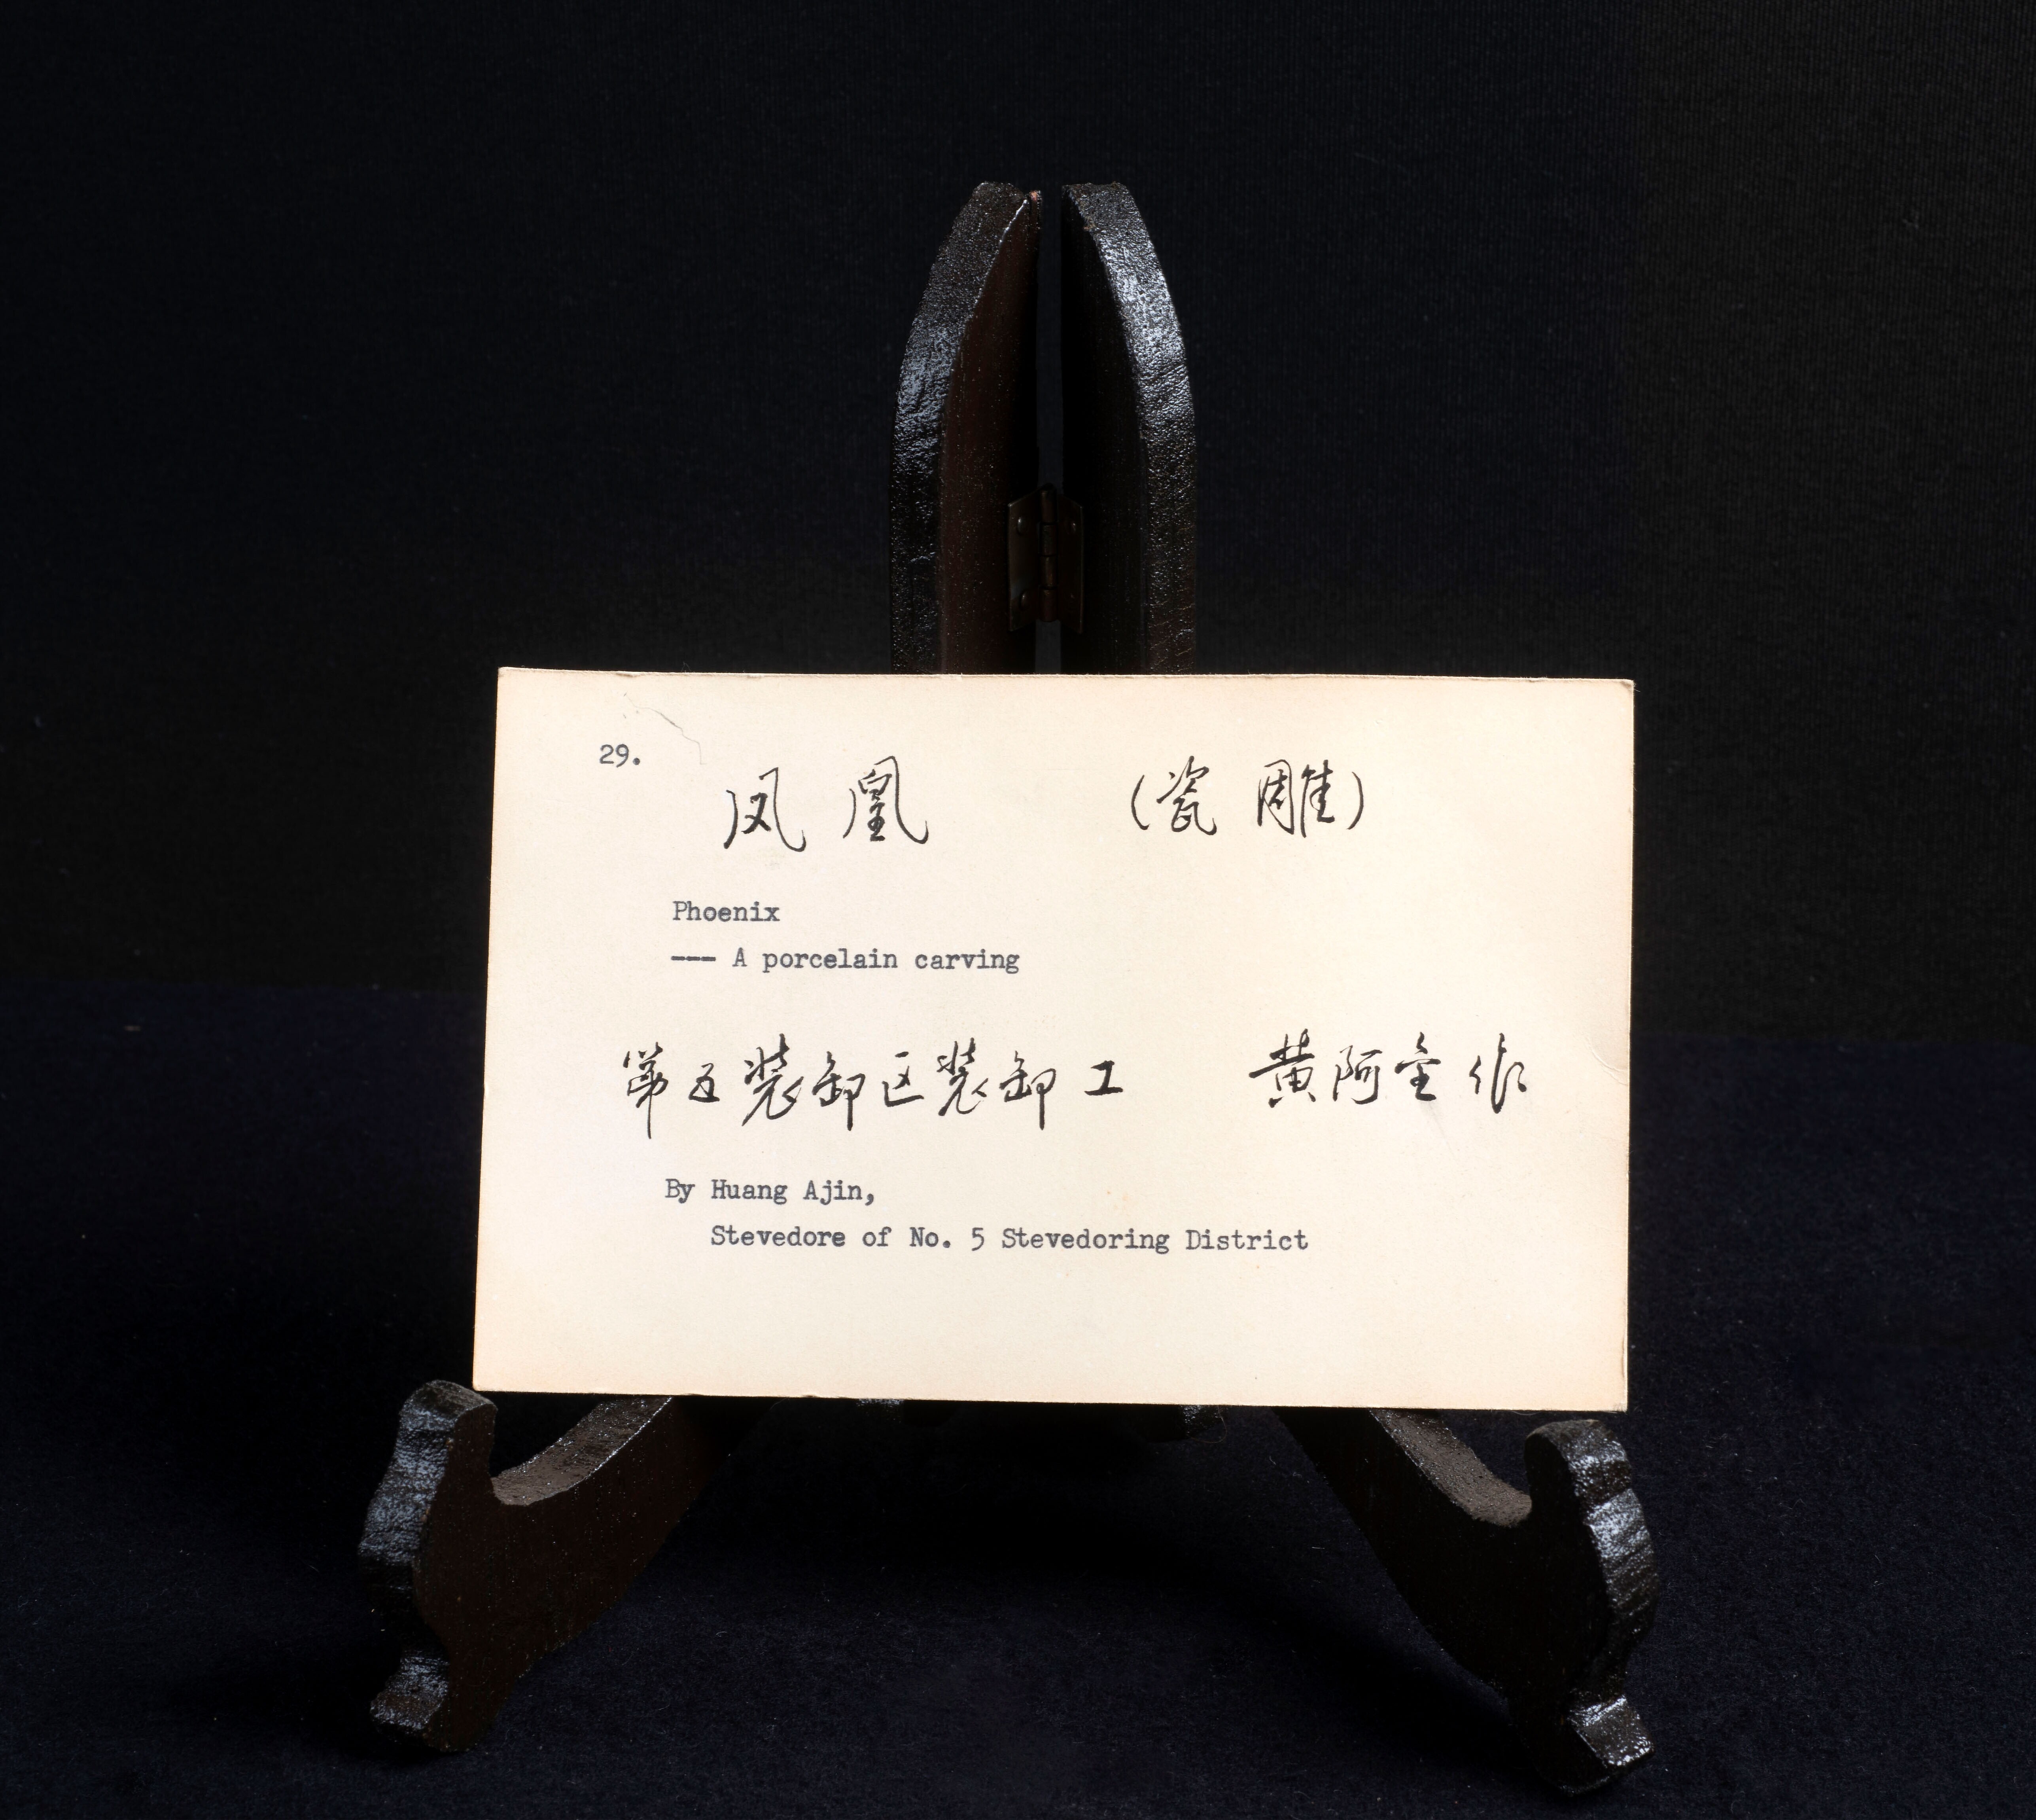 29.
凤凰 (瓷雕)
Phoenix
--- A porcelain carving
第五装卸区装卸工 黄阿金作
By Huang Ajin,
Stevedore of No. 5 Stevedoring District